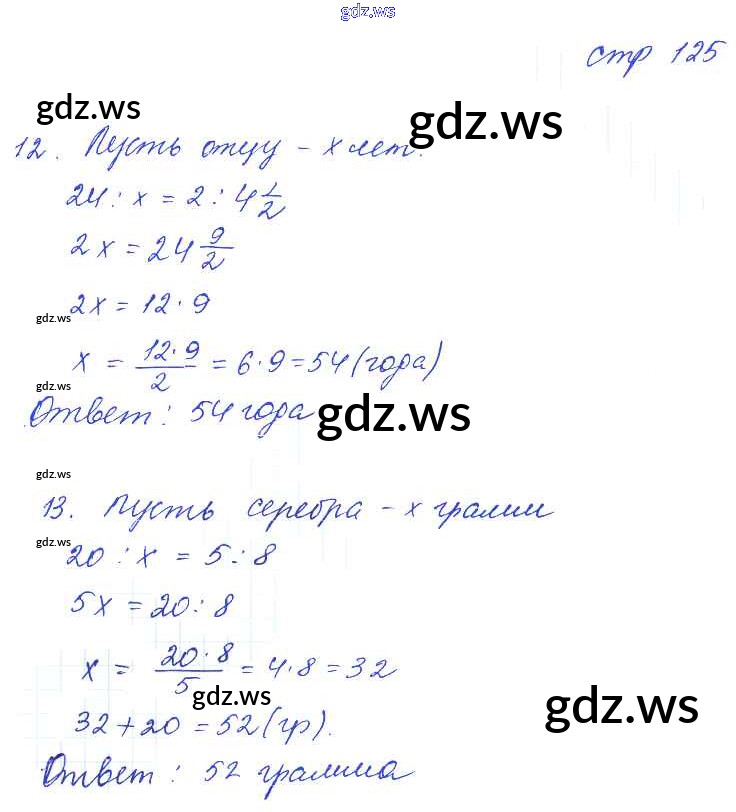 gdz.ws
стр 125
gdz.ws
gdz.ws
12. Пусть отцу - x лет.
24 : x = 2 : 4 1/2
2x = 24 9/2
2x = 12 · 9
gdz.ws
x = 12·9/2 = 6·9 = 54 (года)
gdz.ws
Ответ: 54 года
gdz.ws
gdz.ws
13. Пусть серебра - x грамм
gdz.ws
20 : x = 5 : 8
5x = 20 : 8
x = 20·8/5 = 4·8 = 32
gdz.ws
gdz.ws
32 + 20 = 52 (гр).
Ответ: 52 грамма